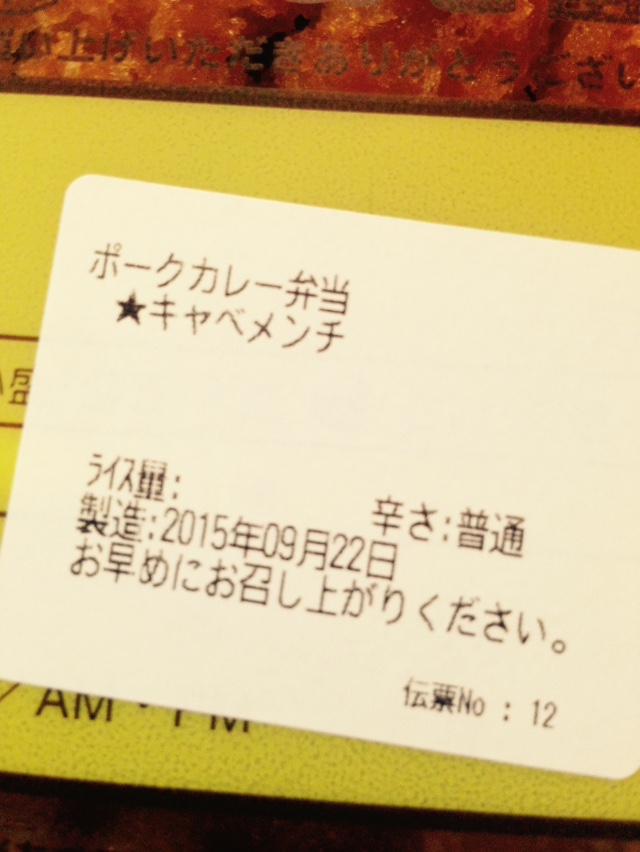 い上げいただきありがとうござい
ポークカレー弁当
★キャベメンチ
盛
ライス量:
辛さ:普通
製造:2015年09月22日
お早めにお召し上がりください。
伝票No : 12
AM・PM